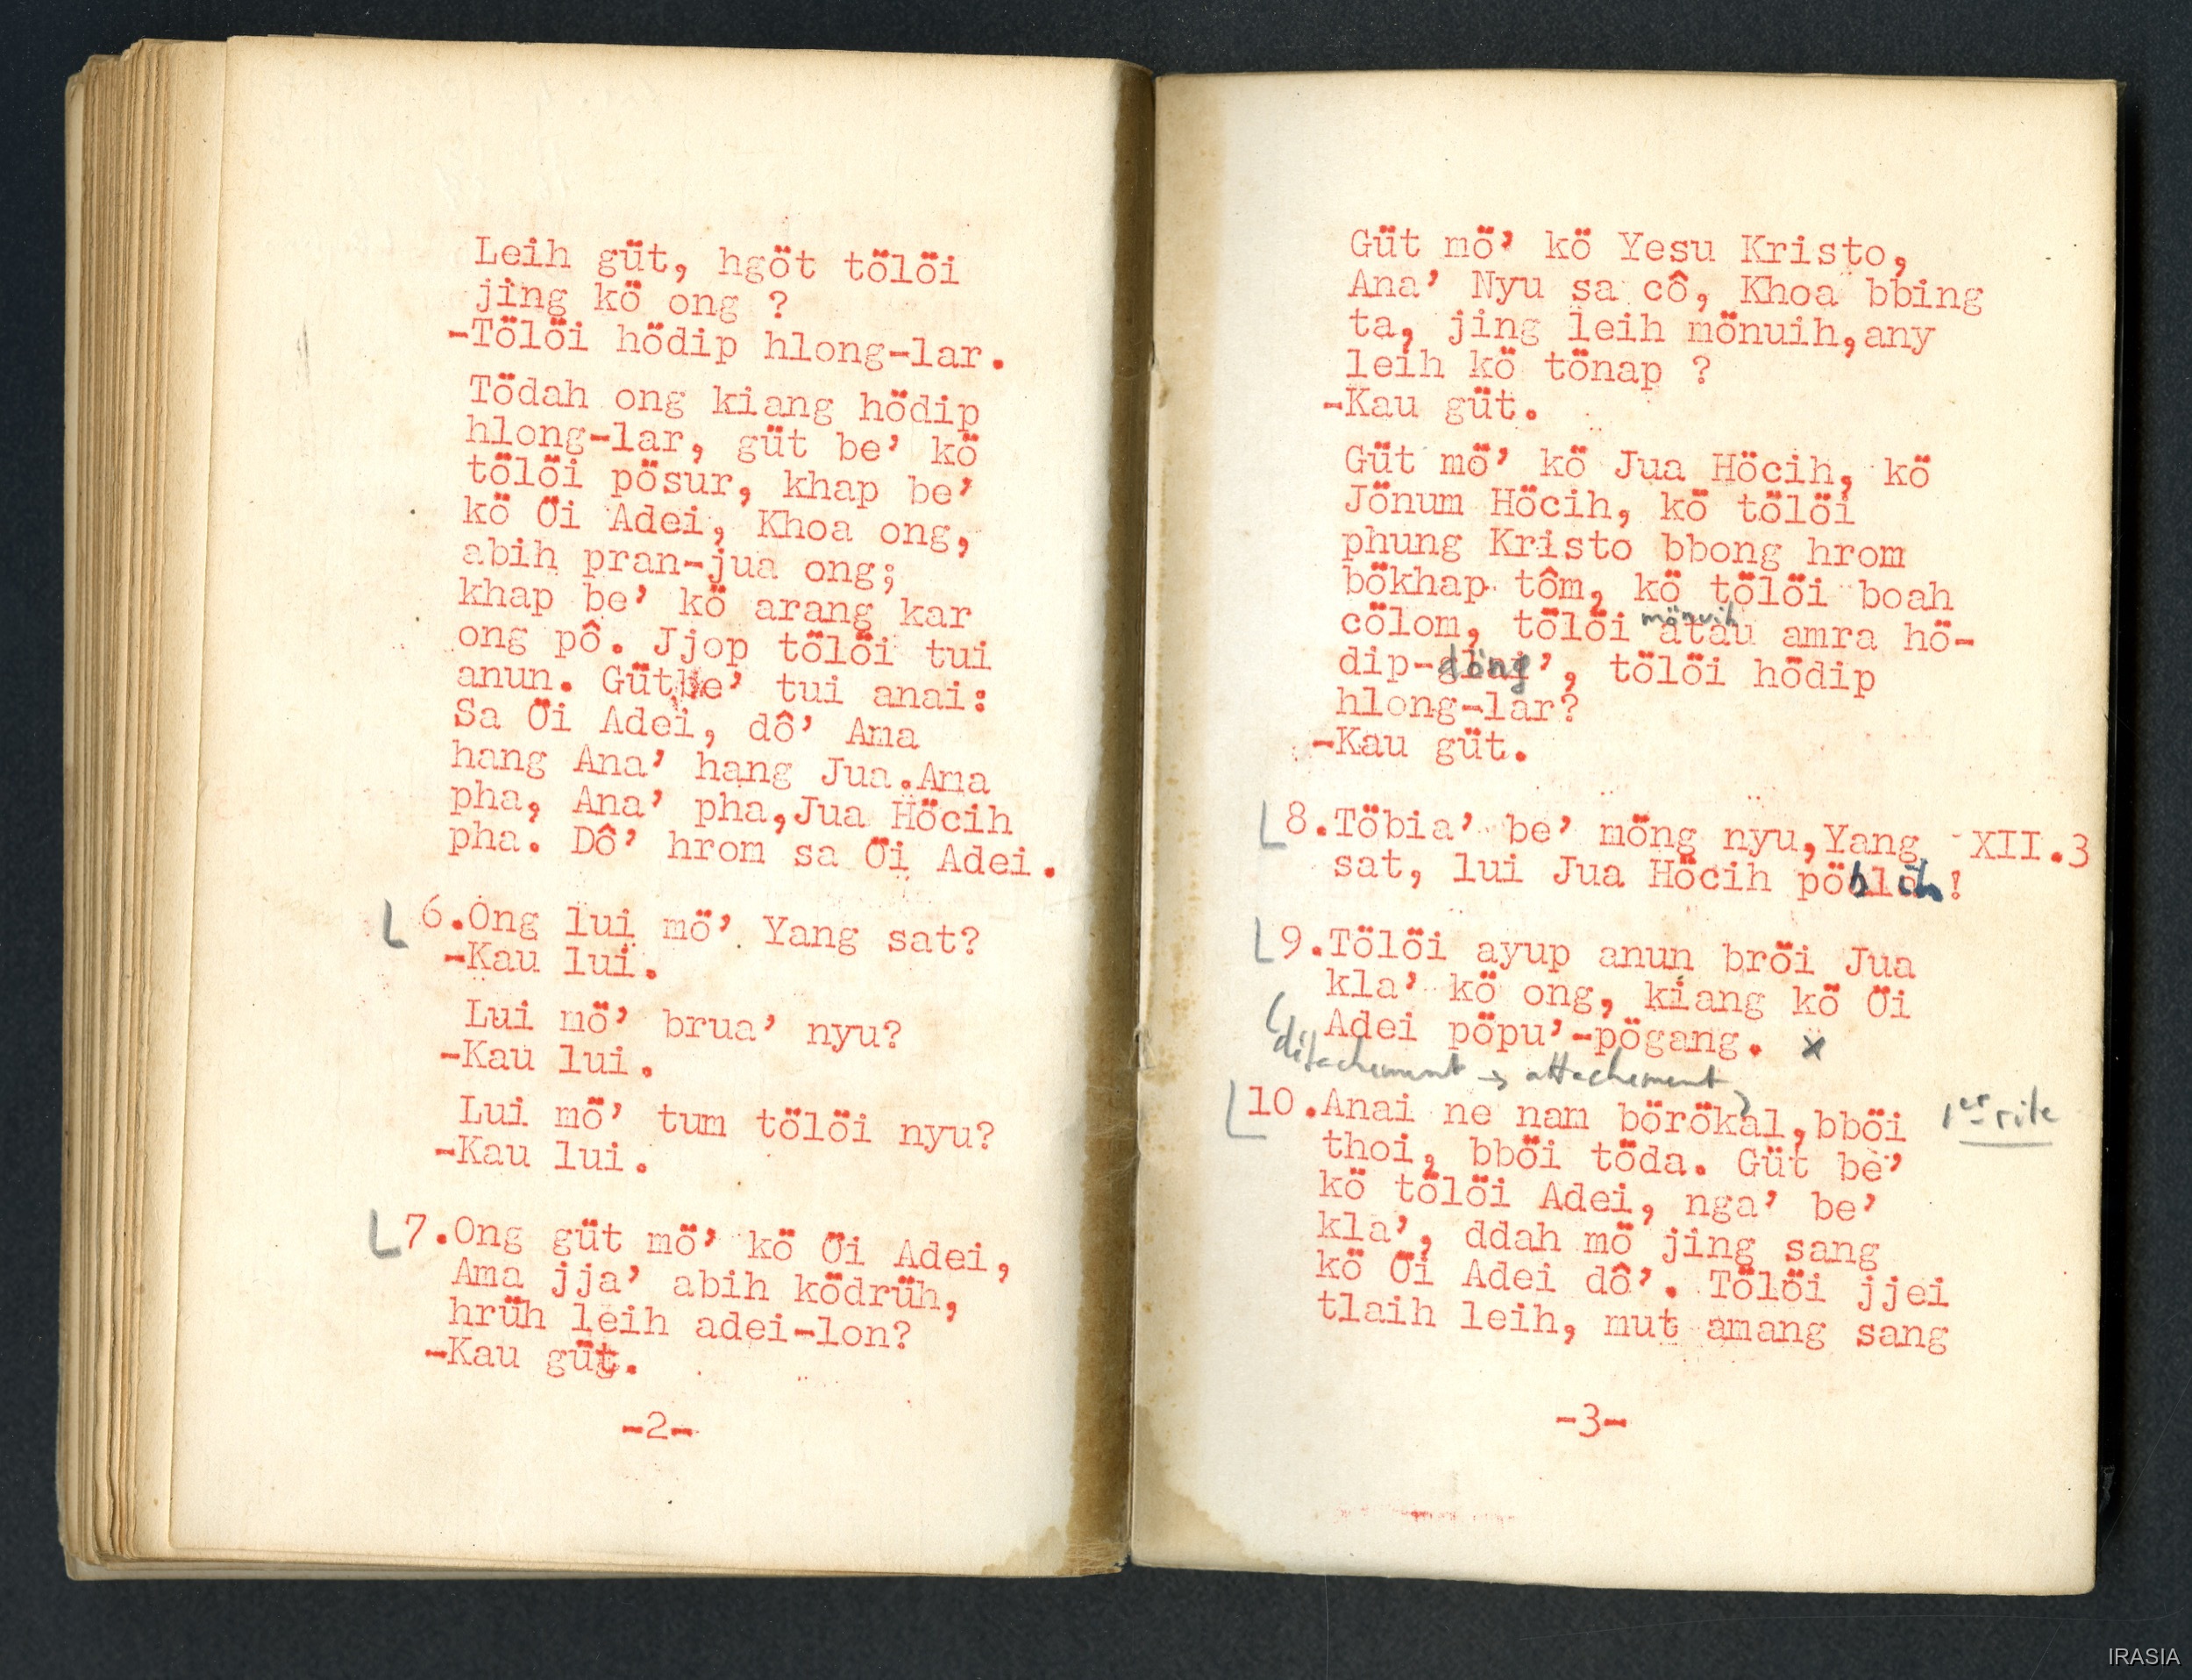 Leih güt, hgöt tölöi
jing kö ong ?
-Tölöi hödip hlong-lar.
Tödah ong kiang hödip
hlong-lar, güt be’ kö
tölöi pösur, khap be’
kö Öi Adei, Khoa ong,
abih pran-jua ong;
khap be’ kö arang kar
ong pô. Jjop tölöi tui
anun. Gütbe’ tui anai:
Sa Öi Adei, dô’ Ama
hang Ana’ hang Jua.Ama
pha, Ana’ pha,Jua Höcih
pha. Dô’ hrom sa Öi Adei.
6.Ong lui mö’ Yang sat?
-Kau lui.
Lui mö’ brua’ nyu?
-Kau lui.
Lui mö’ tum tölöi nyu?
-Kau lui.
7.Ong güt mö’ kö Öi Adei,
Ama jja’ abih ködrüh,
hrüh leih adei-lon?
-Kau güt.
-2-
Güt mö’ kö Yesu Kristo,
Ana’ Nyu sa cô, Khoa bbing
ta, jing leih mönuih,any
leih kö tönap ?
-Kau güt.
Güt mö’ kö Jua Höcih, kö
Jönum Höcih, kö tölöi
phung Kristo bbong hrom
bökhap tôm, kö tölöi boah
mönuih
cölom, tölöi atau amra hö-
dip-döng’, tölöi hödip
hlong-lar?
-Kau güt.
8.Töbia’ be’ möng nyu,Yang XII.3
sat, lui Jua Höcih pöblih!
9.Tölöi ayup anun bröi Jua
kla’ kö ong, kiang kö Öi
Adei pöpu’-pögang. x
(détachement → attachement)
10.Anai ne nam börökal,bböi 1er rite
thoi, bböi töda. Güt be’
kö tölöi Adei, nga’ be’
kla’, ddah mö jing sang
kö Öi Adei dô’. Tölöi jjei
tlaih leih, mut amang sang
-3-
IRASIA